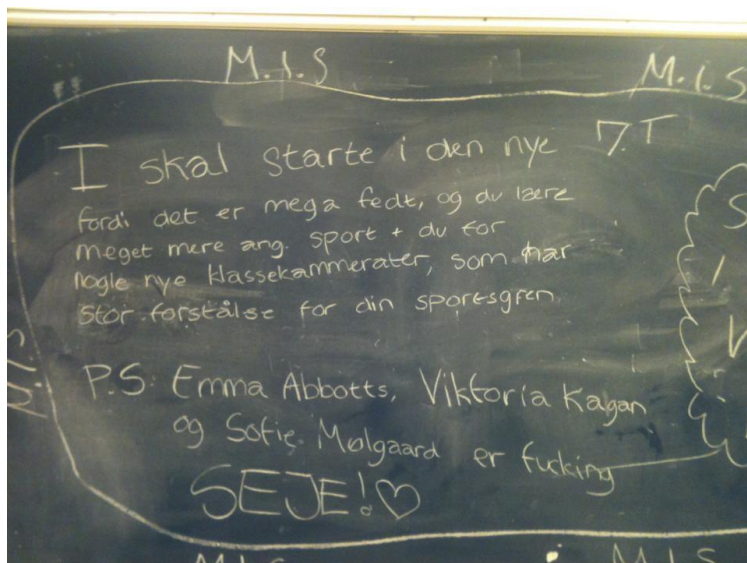 M.I.S
M.I.S
I skal starte i den nye 7.T
fordi det er mega fedt, og du lære
meget mere ang. sport + du for
nogle nye klassekammerater, som har
stor forstålse for din sportsgren.
M.I.S
P.S. Emma Abbotts, Viktoria Kagan
og Sofie Mølgaard er fucking
SEJE!♡
M.I.S
M.I.S